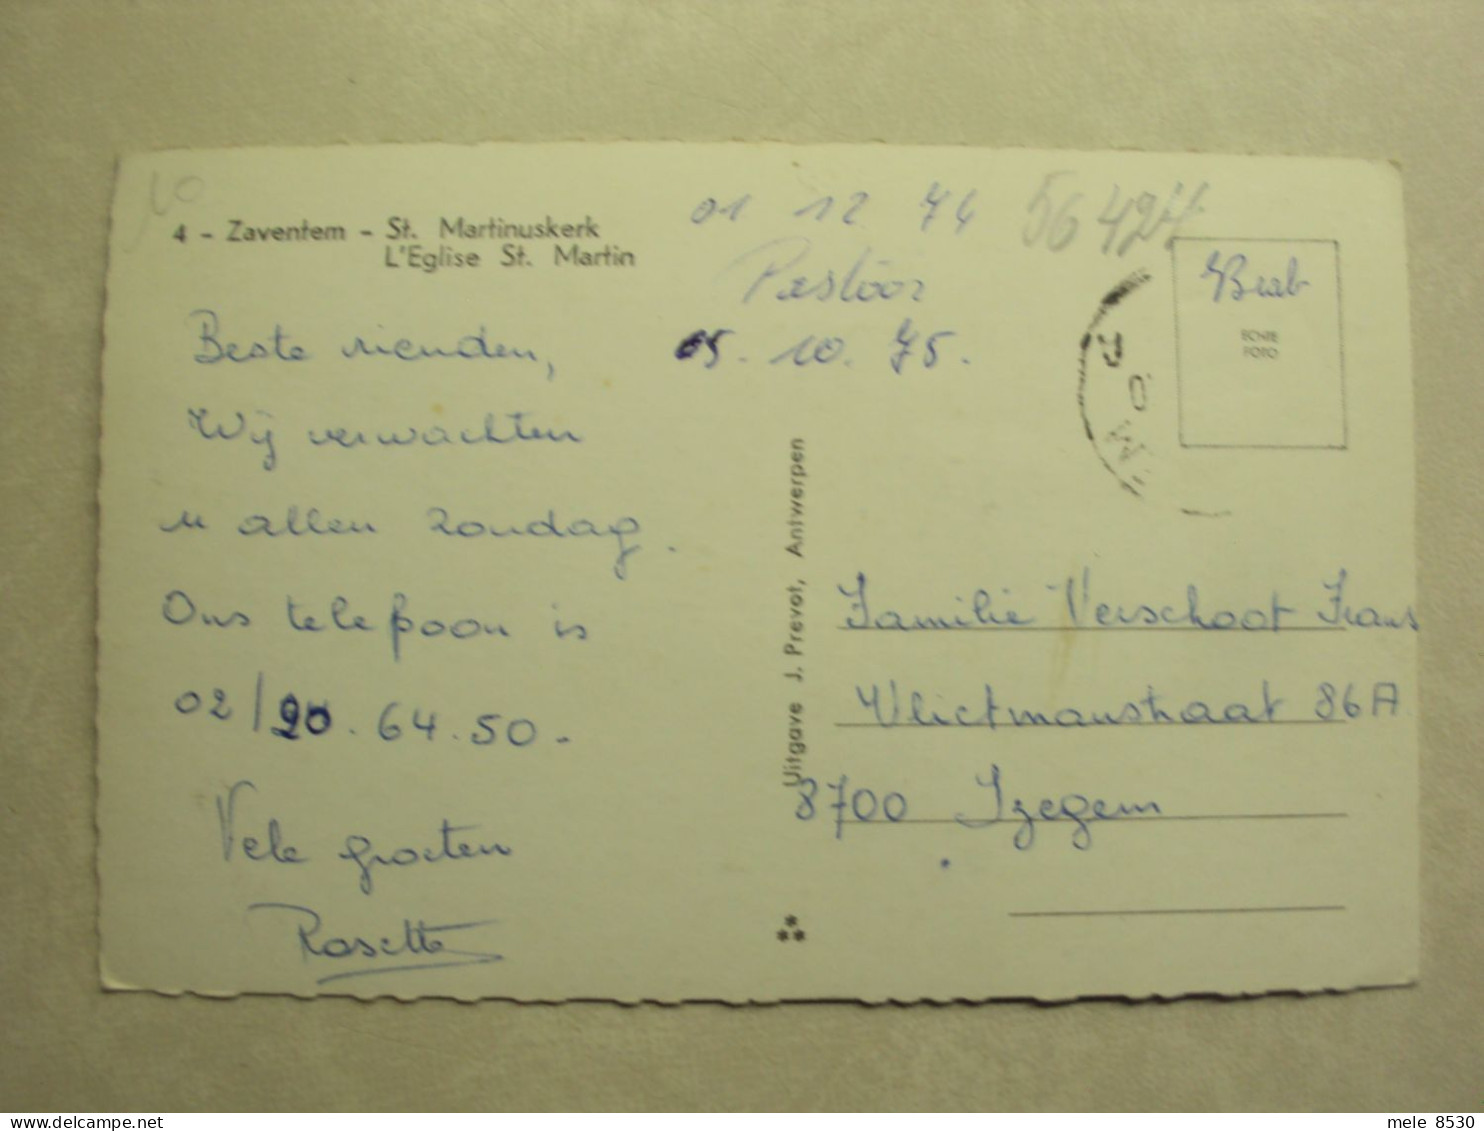 4 - Zaventem - St. Martinuskerk
L'Eglise St. Martin
Beste vrienden,
Wij verwachten
u allen zondag.
Ons telefoon is
02/20.64.50.
Vele groeten
Rosette
01 12 74
Pastoor
05. 10. 75.
Brab
ECHTE
FOTO
Uitgave J. Prevot, Antwerpen
Familie Verschoot Frans
86A
8700 Izegem
mele 8530